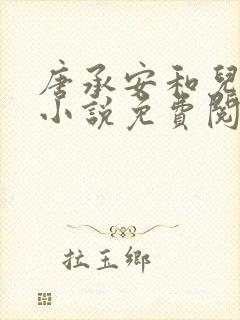 唐承安和兒
小說免費閱
拉玉鄉